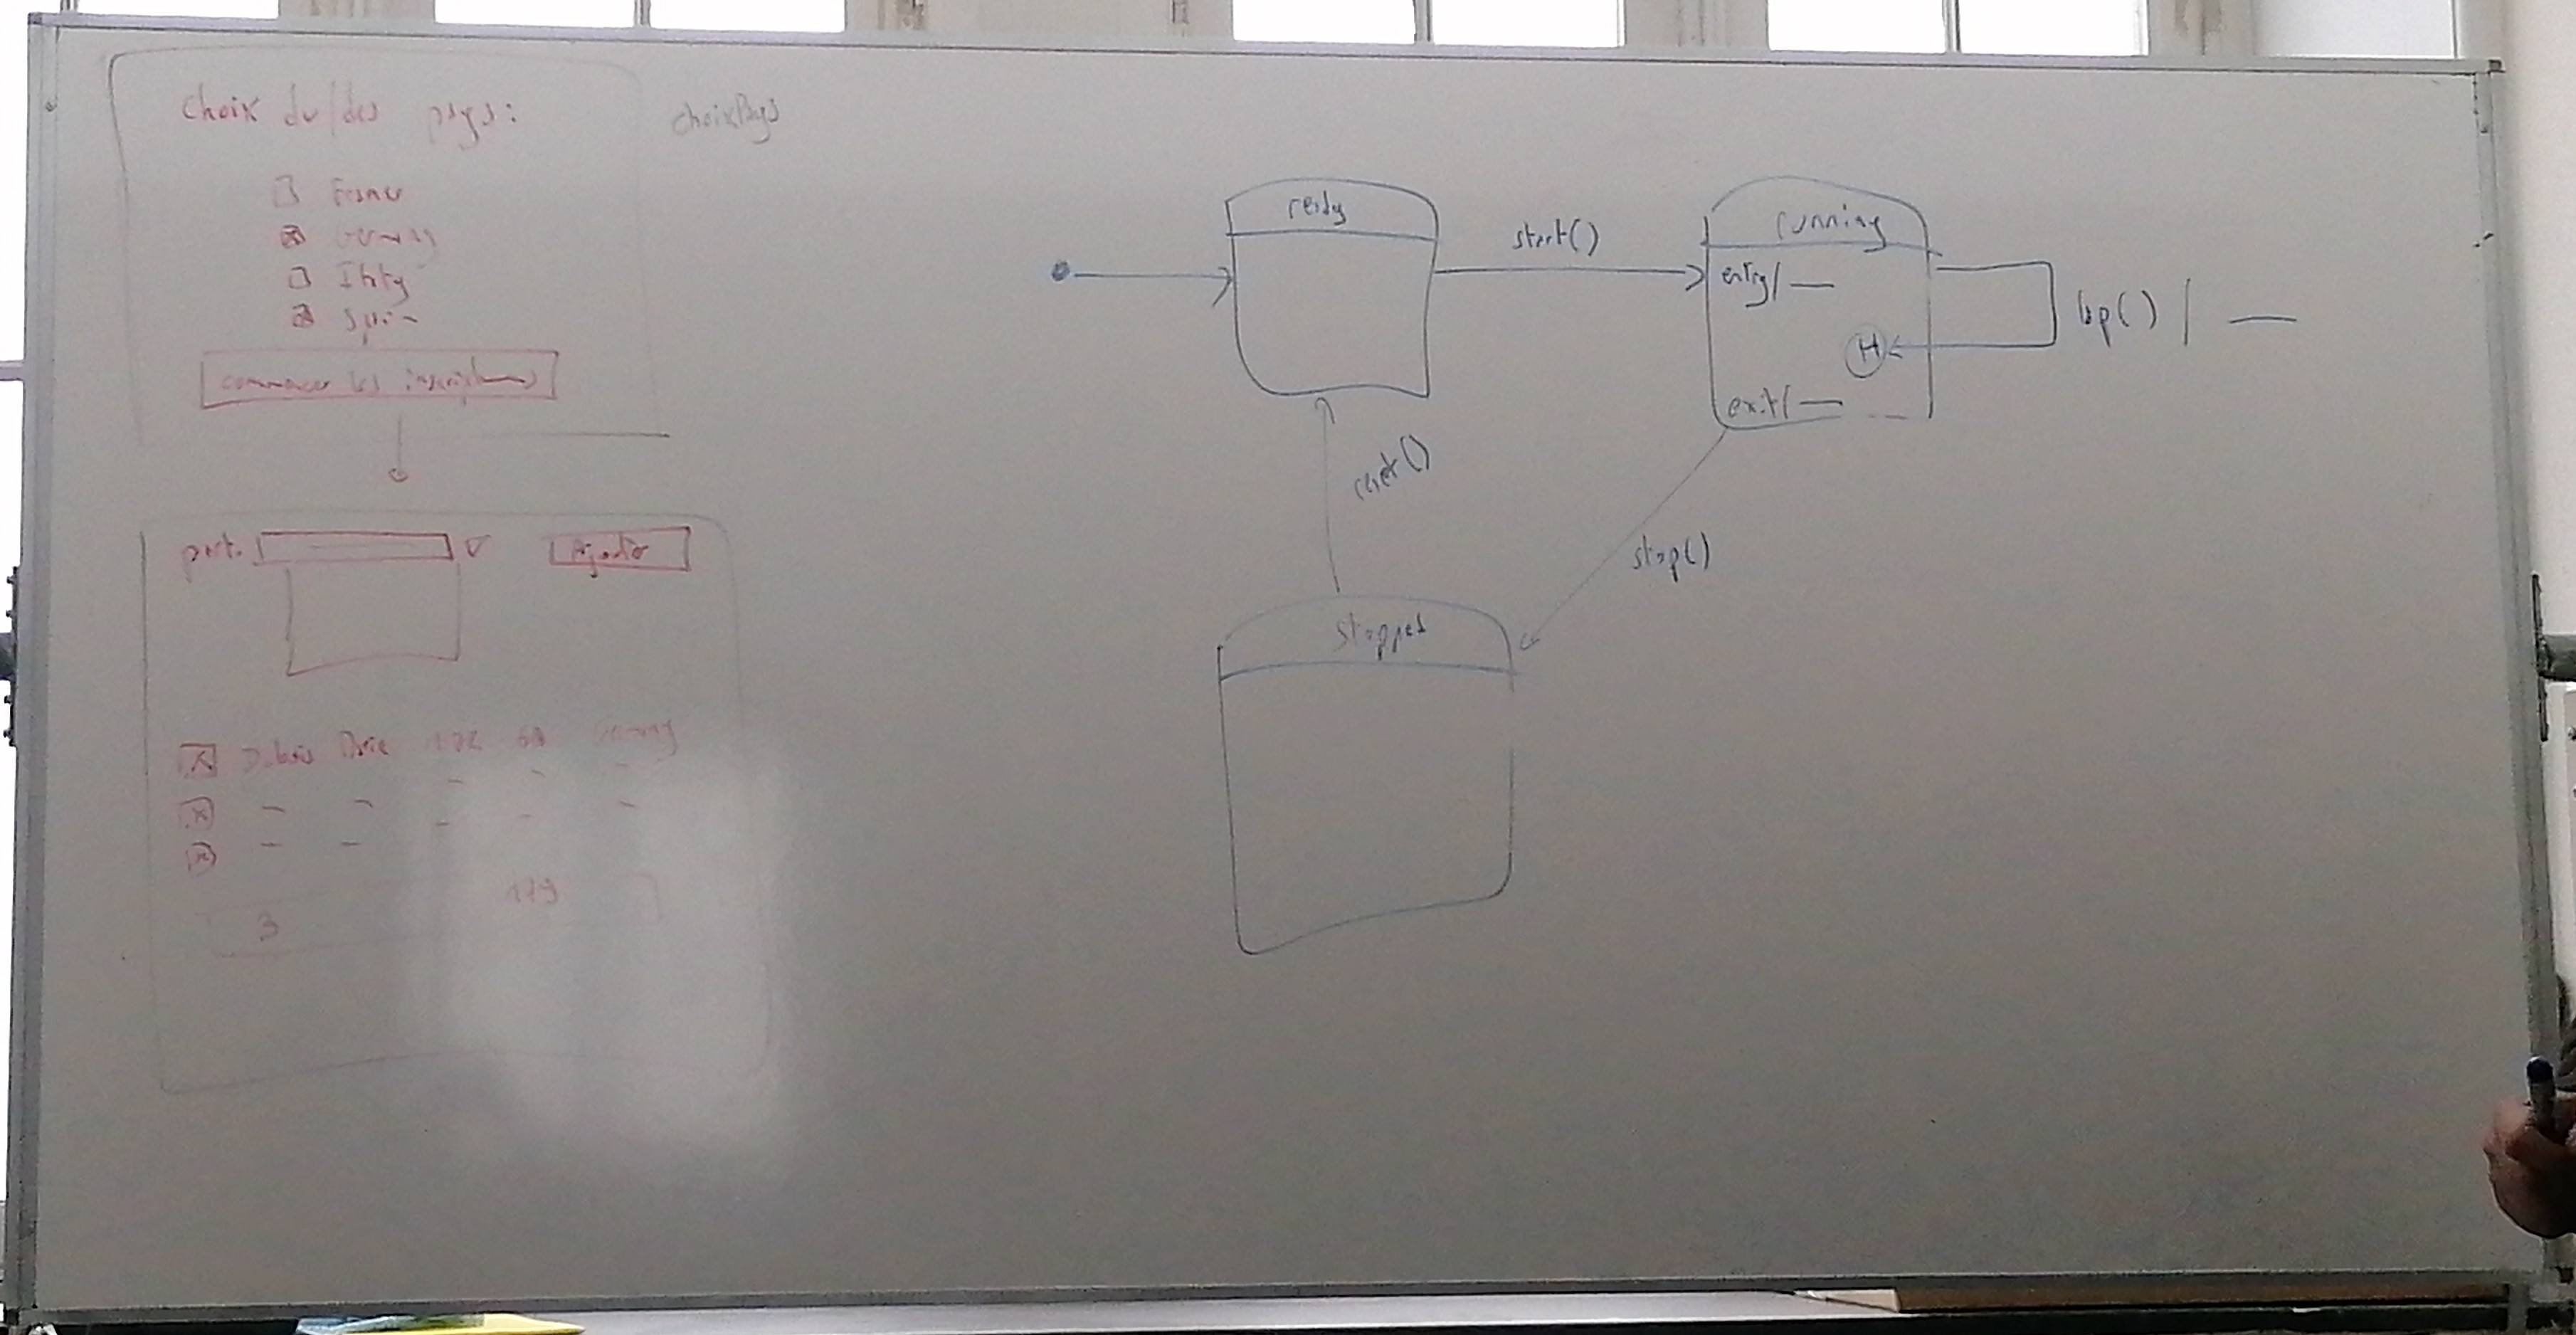 Choix du/des pays :
choixPays
France
Germany
Italy
Spain
commencer les inscriptions
part.
Ajouter
Dubois Marie
3
179
ready
start()
running
entry/ __
H
lap() / __
exit/ __
reset()
stop()
stopped